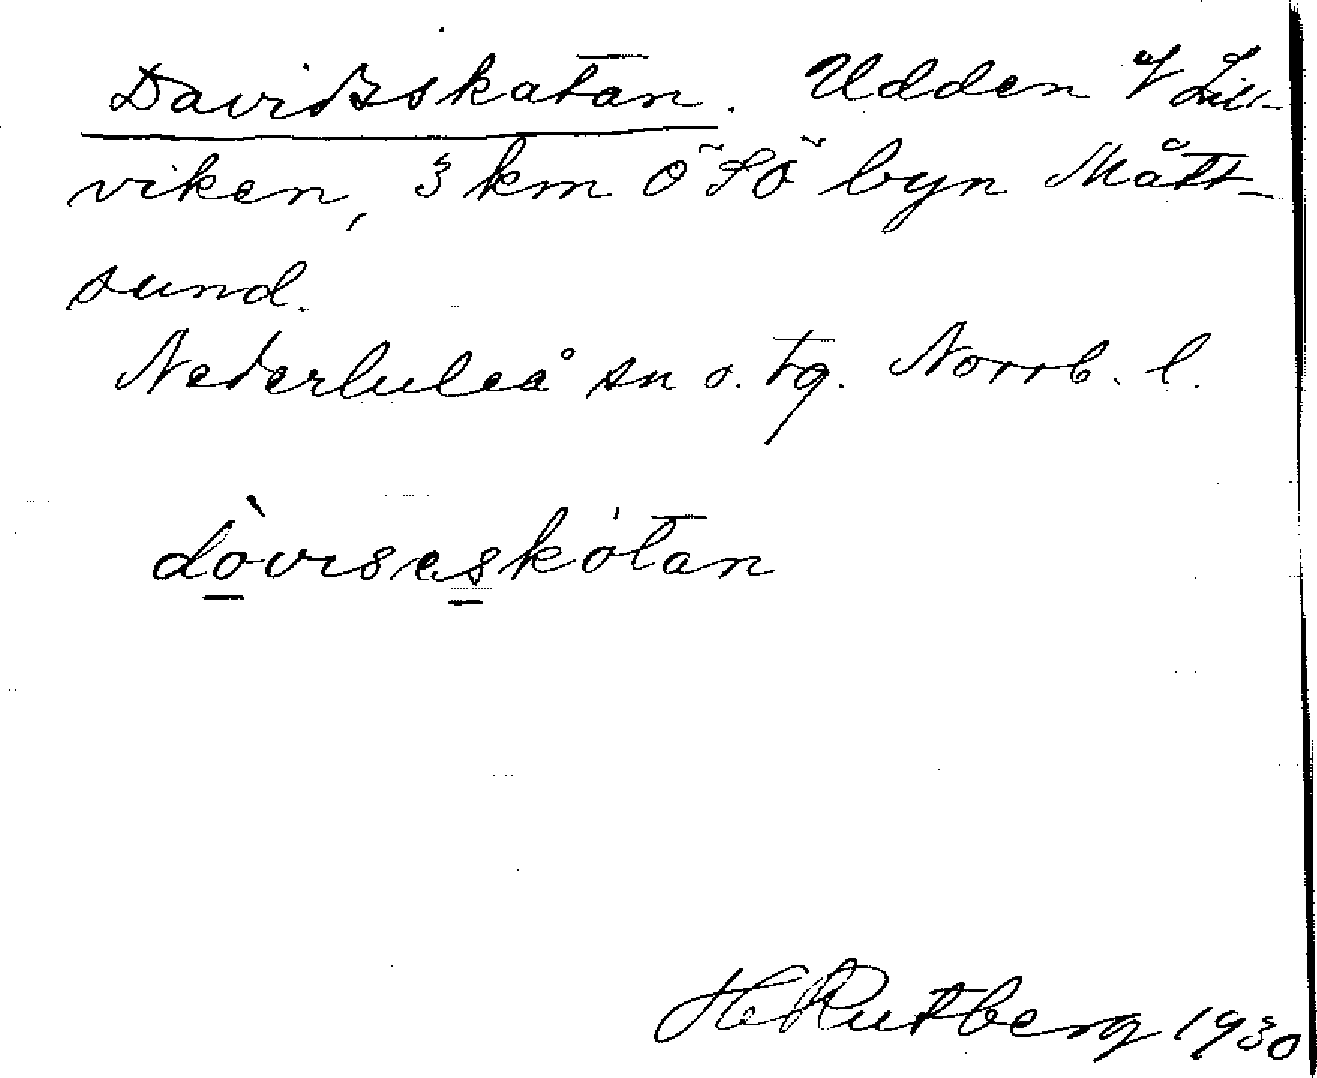 Davidsskatan. Udden V Lill-
viken, 3 km ÖSÖ byn Mått-
sund.
Nederluleå sn o. tg. Norrb. l.
dòvisəskötan
H Rutberg 1930